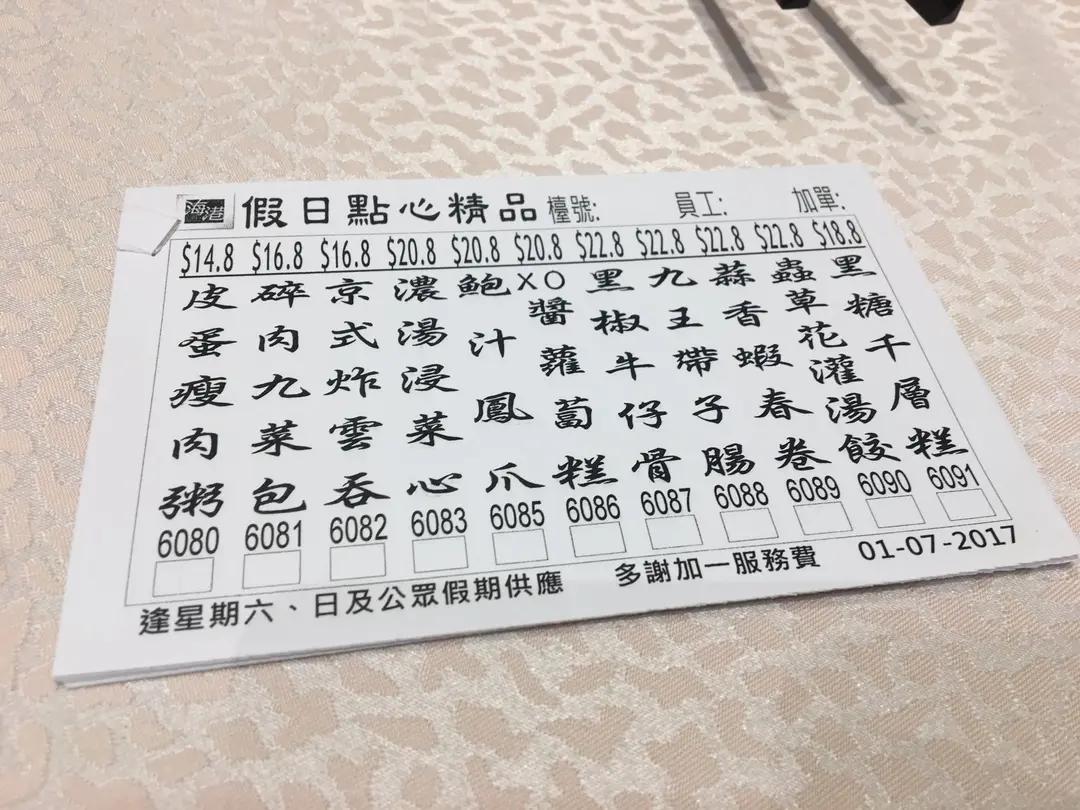 海港 假日點心精品 檯號: 員工: 加單:
$14.8 $16.8 $16.8 $20.8 $20.8 $20.8 $22.8 $22.8 $22.8 $22.8 $18.8
皮蛋瘦肉粥
碎肉九菜包
京式炸雲吞
濃湯浸菜心
鮑汁鳳爪
XO醬蘿蔔糕
黑椒牛仔骨
九王帶子腸
蒜香蝦春卷
蟲草花灌湯餃
黑糖千層糕
6080 6081 6082 6083 6085 6086 6087 6088 6089 6090 6091
逢星期六、日及公眾假期供應 多謝加一服務費 01-07-2017